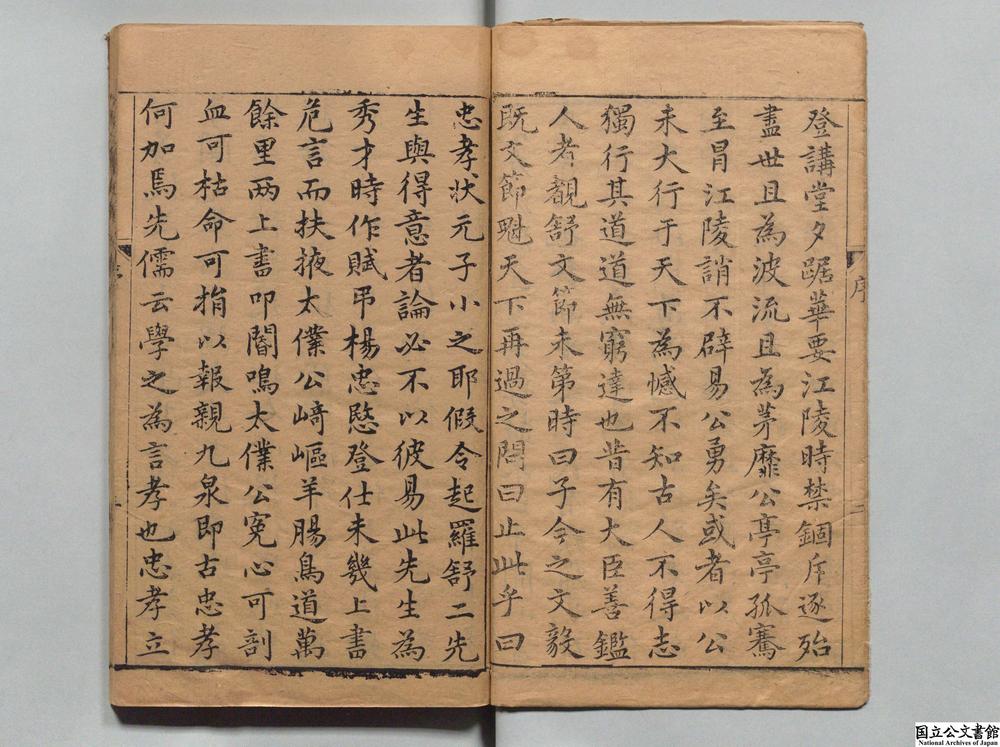 登講堂夕踞華要江陵時禁錮斥逐殆
盡世且為波流且為茅靡公亭亭孤騫
至冐江陵誚不辟易公勇矣或者以公
未大行于天下為憾不知古人不得志
獨行其道道無窮達也昔有大臣善鑑
人者覩舒文節未第時曰子今之文毅
既文節魁天下再過之問曰止此乎曰
忠孝狀元子小之耶假令起羅舒二先
生與得意者論必不以彼易此先生為
秀才時作賦弔楊忠愍登仕未幾上書
危言而扶掖太僕公﨑嶇羊腸鳥道萬
餘里两上書叩閽鳴太僕公寃心可剖
血可枯命可捐以報親九泉即古忠孝
何加焉先儒云學之為言孝也忠孝立
序
二
序
国立公文書館
National Archives of Japan